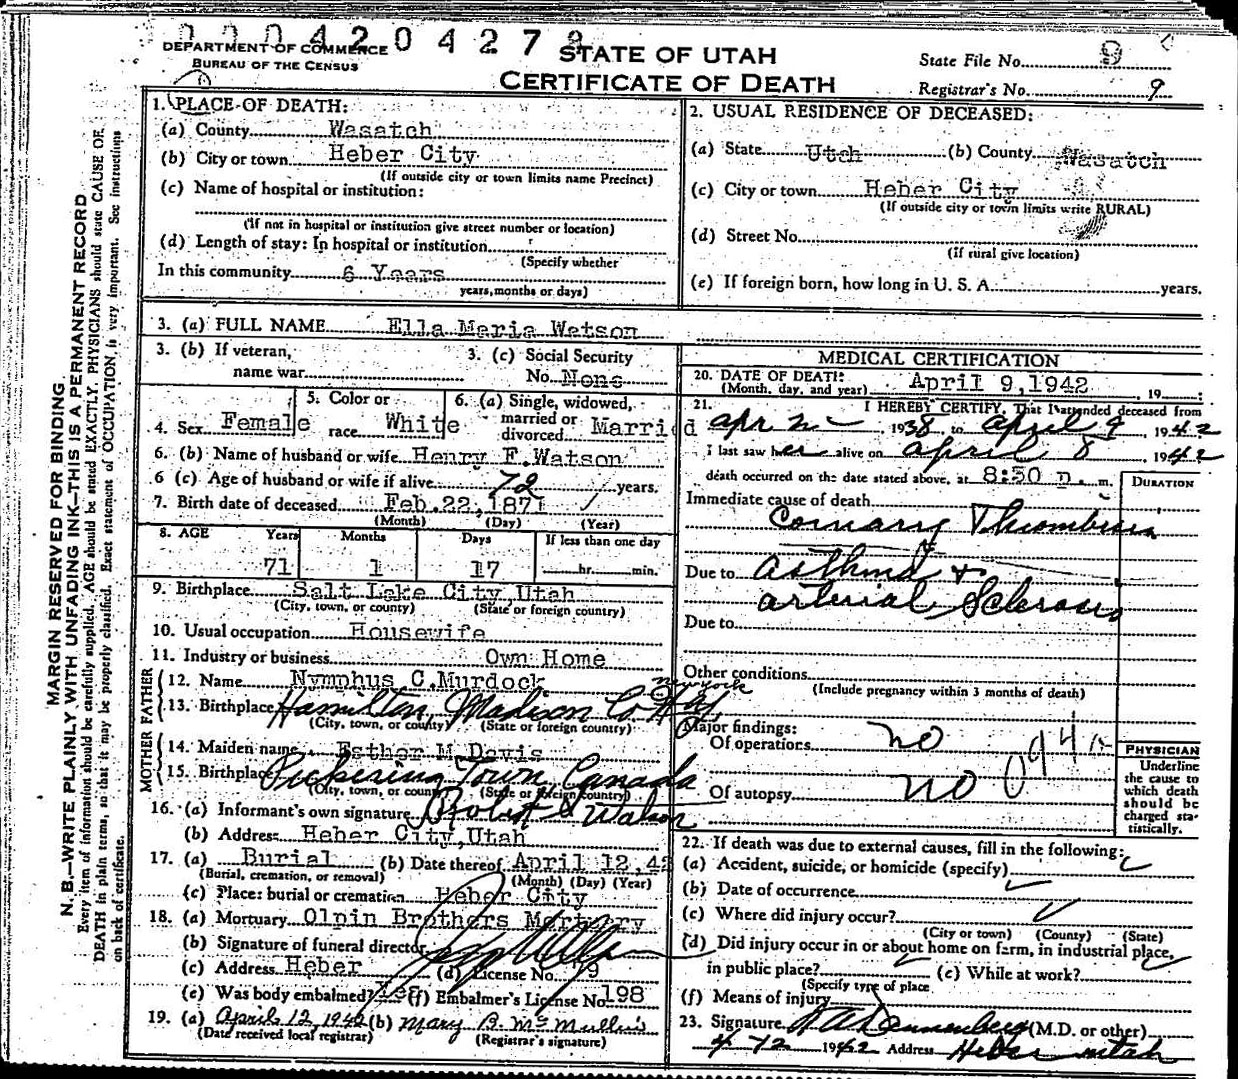 0004204278
DEPARTMENT OF COMMERCE
BUREAU OF THE CENSUS
STATE OF UTAH
CERTIFICATE OF DEATH
State File No. 9
Registrar's No. 9
MARGIN RESERVED FOR BINDING
N. B.—WRITE PLAINLY WITH UNFADING INK—THIS IS A PERMANENT RECORD
Every item of information should be carefully supplied. AGE should be stated EXACTLY. PHYSICIANS should state CAUSE OF
DEATH in plain terms, so that it may be properly classified. Exact statement of OCCUPATION is very important. See instructions
on back of certificate.
1. PLACE OF DEATH:
(a) County Wasatch
(b) City or town Heber City
(If outside city or town limits name Precinct)
(c) Name of hospital or institution:
(If not in hospital or institution give street number or location)
(d) Length of stay: In hospital or institution
(Specify whether
In this community 6 Years
years, months or days)
2. USUAL RESIDENCE OF DECEASED:
(a) State Utah (b) County Wasatch
(c) City or town Heber City
(If outside city or town limits write RURAL)
(d) Street No.
(If rural give location)
(e) If foreign born, how long in U. S. A. years.
3. (a) FULL NAME Ella Maria Watson
3. (b) If veteran,
name war
3. (c) Social Security
No. None
4. Sex Female
5. Color or
race White
6. (a) Single, widowed,
married or
divorced Married
6. (b) Name of husband or wife Henry F. Watson
6 (c) Age of husband or wife if alive 72 years.
7. Birth date of deceased Feb. 22, 1871
(Month) (Day) (Year)
8. AGE Years Months Days If less than one day
71 1 17 hr. min.
9. Birthplace Salt Lake City, Utah
(City, town, or county) (State or foreign country)
10. Usual occupation Housewife
11. Industry or business Own Home
FATHER
12. Name Nymphus C. Murdock
New York
13. Birthplace Hamilton, Madison Co
(City, town, or county) (State or foreign country)
MOTHER
14. Maiden name Esther M Davis
15. Birthplace Pickering Town Canada
(City, town, or county) (State or foreign country)
16. (a) Informant's own signature Robert Watson
(b) Address Heber City, Utah
17. (a) Burial (b) Date thereof April 12, 42
(Burial, cremation, or removal) (Month) (Day) (Year)
(c) Place: burial or cremation Heber City
18. (a) Mortuary Olpin Brothers Mortuary
(b) Signature of funeral director
(c) Address Heber (d) License No. 79
(e) Was body embalmed? Yes (f) Embalmer's License No. 198
19. (a) April 12, 1942 (b) Mary B. McMullin
(Date received local registrar) (Registrar's signature)
MEDICAL CERTIFICATION
20. DATE OF DEATH:
(Month, day, and year) April 9, 1942, 19 :
21. I HEREBY CERTIFY, That I attended deceased from
Apr 2, 1938, to April 9, 1942
I last saw her alive on April 8, 1942
death occurred on the date stated above, at 8:30 p. m.
DURATION
Immediate cause of death
Coronary Thrombosis
Due to Asthma +
Arterial Sclerosis
Due to
Other conditions
(Include pregnancy within 3 months of death)
Major findings:
Of operations no
094
Of autopsy no
PHYSICIAN
Underline
the cause to
which death
should be
charged sta-
tistically.
22. If death was due to external causes, fill in the following:
(a) Accident, suicide, or homicide (specify)
(b) Date of occurrence
(c) Where did injury occur?
(City or town) (County) (State)
(d) Did injury occur in or about home on farm, in industrial place,
in public place? (e) While at work?
(Specify type of place
(f) Means of injury
23. Signature Dannenberg (M.D. or other)
4 12 1942 Address Heber Utah